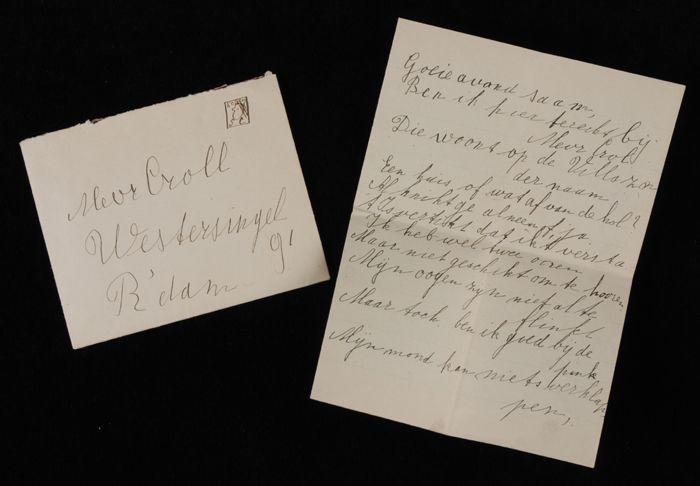 Mevr Croll
Westersingel
91
R'dam
Goeie avond saam,
Ben ik hier terecht bij
Mevr Crol
Die woont op de Villa
der naam
Een huis, of wat af van de hol?
Al knikt ge alneens ja
dat ik't versta
Ik heb wel twee ooren
Maar niet geschikt om te hooren
Mijn oogen zyn niet al te
flink
Maar toch ben ik goed bij de
pink
Mijn mond kan niets verklap
pen,